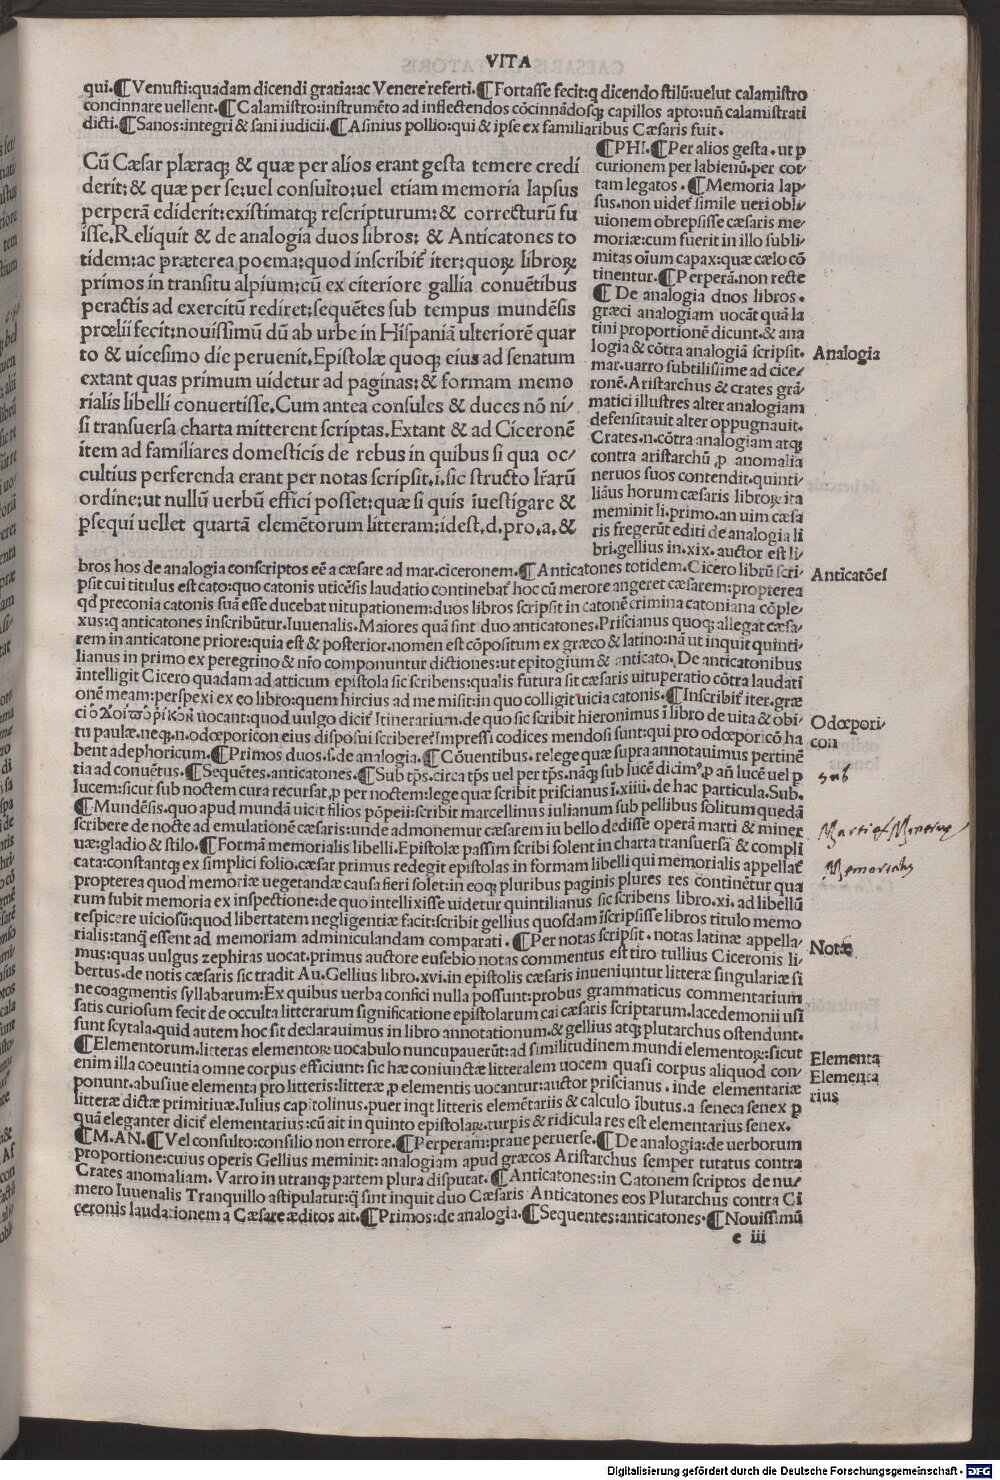 VITA
qui.¶Venusti:quadam dicendi gratia:ac Venere referti.¶Fortasse fecit:ꝙ dicendo stilū:uelut calamistro
concinnare uellent.¶Calamistro:instrumēto ad inflectendos cōcinnādosqꝫ capillos apto:un̄ calamistrati
dicti.¶Sanos:integri & sani iudicii.¶Asinius pollio:qui & ipse ex familiaribus Cæsaris fuit.
Cū Cæsar plæraqꝫ & quæ per alios erant gesta temere credi
derit: & quæ per se:uel consulto:uel etiam memoria lapsus
perperā ediderit:existimatqꝫ rescripturum: & correcturū fu
isse.Reliquit & de analogia duos libros: & Anticatones to
tidem:ac præterea poema:quod inscribit̄ iter:quoꝝ libroꝝ
primos in transitu alpium:cū ex citeriore gallia conuētibus
peractis ad exercitū rediret:sequētes sub tempus mundēsis
prœlii fecit:nouissimū dū ab urbe in Hispaniā ulteriorē quar
to & uicesimo die peruenit.Epistolæ quoqꝫ eius ad senatum
extant quas primum uidetur ad paginas: & formam memo
rialis libelli conuertisse.Cum antea consules & duces nō ni/
si transuersa charta mitterent scriptas.Extant & ad Ciceronē
item ad familiares domesticis de rebus in quibus si qua oc/
cultius perferenda erant per notas scripsit.i.sic structo lr̄arū
ordine:ut nullū uerbū effici posset:quæ si quis īuestigare &
ꝑsequi uellet quartā elemētorum litteram:idest.d.pro.a.&
¶PHI.¶Per alios gesta.ut ꝑ
curionem per labienū.per cot
tam legatos.¶Memoria lap/
sus.non uidet̄ simile ueri obli/
uionem obrepsisse cæsaris me/
moriæ:cum fuerit in illo subli/
mitas oīum capax:quæ cælo cō
tinentur.¶Perperā.non recte
¶De analogia duos libros.
græci analogiam uocāt quā la
tini proportionē dicunt.& ana
logia & cōtra analogiā scripsit.
mar.uarro subtilissime ad cice/
ronē.Aristarchus & crates grā/
matici illustres alter analogiam
defensitauit alter oppugnauit.
Crates.n.cōtra analogiam atqꝫ
contra aristarchū ꝓ anomalia
neruos suos contendit.quinti/
liāus horum cæsaris libroꝝ ita
meminit li.primo.an uim cæsa
ris fregerūt editi de analogia li
bri.gellius in.xix.auctor est li/
Analogia
bros hos de analogia conscriptos eē a cæsare ad mar.ciceronem.¶Anticatones totidem.Cicero librū scri/
psit cui titulus est cato:quo catonis uticēsis laudatio continebat̄ hoc cū merore angeret cæsarem:propterea
qd̄ preconia catonis suā esse ducebat uitupationem:duos libros scripsit in catonē crimina catoniana cōple/
xus:q anticatones inscribūtur.Iuuenalis.Maiores quā sint duo anticatones.Priscianus quoqꝫ allegat cæsa/
rem in anticatone priore:quia est & posterior.nomen est cōpositum ex græco & latino:nā ut inquit quinti/
lianus in primo ex peregrino & nīo componuntur dictiones:ut epitogium & anticato.De anticatonibus
intelligit Cicero quadam ad atticum epistola sic scribens:qualis futura sit cæsaris uituperatio cōtra laudati
onē meam:perspexi ex eo libro:quem hircius ad me misit:in quo colligit uicia catonis.¶Inscribit̄ iter.græ
ci uocant:quod uulgo dicit̄ Itinerarium.de quo sic scribit hieronimus ī libro de uita & obi/
tu paulæ.neqꝫ.n.odœporicon eius disposui scribere?Impressi codices mendosi sunt:qui pro odœporicō ha
bent adephoricum.¶Primos duos.s.de analogia.¶Cōuentibus.relege quæ supra annotauimus pertinē
tia ad conuētus.¶Sequētes.anticatones.¶Sub tp̄s.circa tp̄s uel per tp̄s.nāqꝫ sub lucē dicim᷒ ꝓ an̄ lucē uel ꝑ
lucem:sicut sub noctem cura recursat ꝓ per noctem:lege quæ scribit priscianus ī.xiiii.de hac particula.Sub.
¶Mundēsis.quo apud mundā uicit filios pōpeii:scribit marcellinus iulianum sub pellibus solitum quedā
scribere de nocte ad emulationē cæsaris:unde admonemur cæsarem iu bello dedisse operā marti & miner
uæ:gladio & stilo.¶Formā memorialis libelli.Epistolæ passim scribi solent in charta transuersa & compli
cata:constantqꝫ ex simplici folio.cæsar primus redegit epistolas in formam libelli qui memorialis appellat̄
propterea quod memoriæ uegetandæ causa fieri solet:in eoqꝫ pluribus paginis plures res continētur qua
rum subit memoria ex inspectione:de quo intellixisse uidetur quintilianus sic scribens libro.xi.ad libellū
respicere uiciosū:quod libertatem negligentiæ facit:scribit gellius quosdam īscripsisse libros titulo memo
rialis:tanq̄ essent ad memoriam adminiculandam comparati.¶Per notas scripsit.notas latinæ appella/
mus:quas uulgus zephiras uocat.primus auctore eusebio notas commentus est tiro tullius Ciceronis li/
bertus.de notis cæsaris sic tradit Au.Gellius libro.xvi.in epistolis cæsaris inueniuntur litteræ singulariæ si
ne coagmentis syllabarum:Ex quibus uerba confici nulla possunt:probus grammaticus commentarium
satis curiosum fecit de occulta litterarum significatione epistolarum cai cæsaris scriptarum.lacedemonii usi
sunt scytala.quid autem hoc sit declarauimus in libro annotationum.& gellius atqꝫ plutarchus ostendunt.
¶Elementorum.litteras elementoꝝ uocabulo nuncupauerūt:ad similitudinem mundi elementoꝝ:sicut
enim illa coeuntia omne corpus efficiunt: sic hæ coniunctæ litteralem uocem quasi corpus aliquod con/
ponunt.abusiue elementa pro litteris:litteræ ꝓ elementis uocantur:auctor priscianus.inde elementariæ
litteræ dictæ primitiuæ.Iulius capitolinus.puer inqt litteris elemētariis & calculo ībutus.a seneca senex ꝑ
quā eleganter dicit̄ elementarius:cū ait in quinto epistolaꝝ.turpis & ridicula res est elementarius senex.
¶M.AN.¶Vel consulto:consilio non errore.¶Perperam:praue peruerse.¶De analogia:de uerborum
proportione:cuius operis Gellius meminit: analogiam apud græcos Aristarchus semper tutatus contra
Crates anomaliam. Varro in utranqꝫ partem plura disputat.¶Anticatones:in Catonem scriptos de nu/
mero Iuuenalis Tranquillo astipulatur:q̄ sint inquit duo Cæsaris Anticatones eos Plutarchus contra Ci
ceronis laudationem a Cæsare æditos ait.¶Primos:de analogia.¶Sequentes:anticatones.¶Nouissimū
e iii
Anticatōes
Odœpori-
con
sub
Marti et Minerue
Memorialis
Notæ
Elementa
Elementa
rius
Digitalisierung gefördert durch die Deutsche Forschungsgemeinschaft - DFG